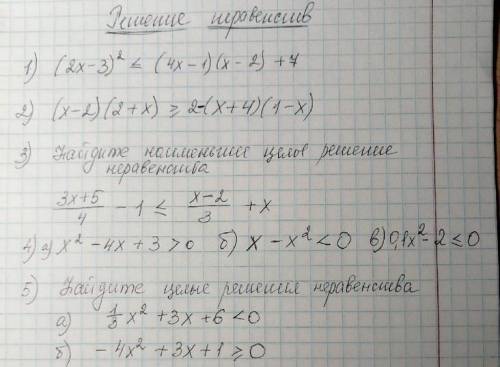 Решение неравенств
1) (2x-3)² ≤ (4x-1)(x-2) +7
2) (x-2)(2+x) ≥ 2-(x+4)(1-x)
3) Найдите наименьшее целое решение
неравенства
(3x+5)/4 - 1 ≤ (x-2)/3 + x
4) а) x² - 4x + 3 > 0 б) x - x² < 0 в) 0,1x² - 2 ≤ 0
5) Найдите целые решения неравенства
а) 1/3 x² + 3x + 6 < 0
б) - 4x² + 3x + 1 ≥ 0